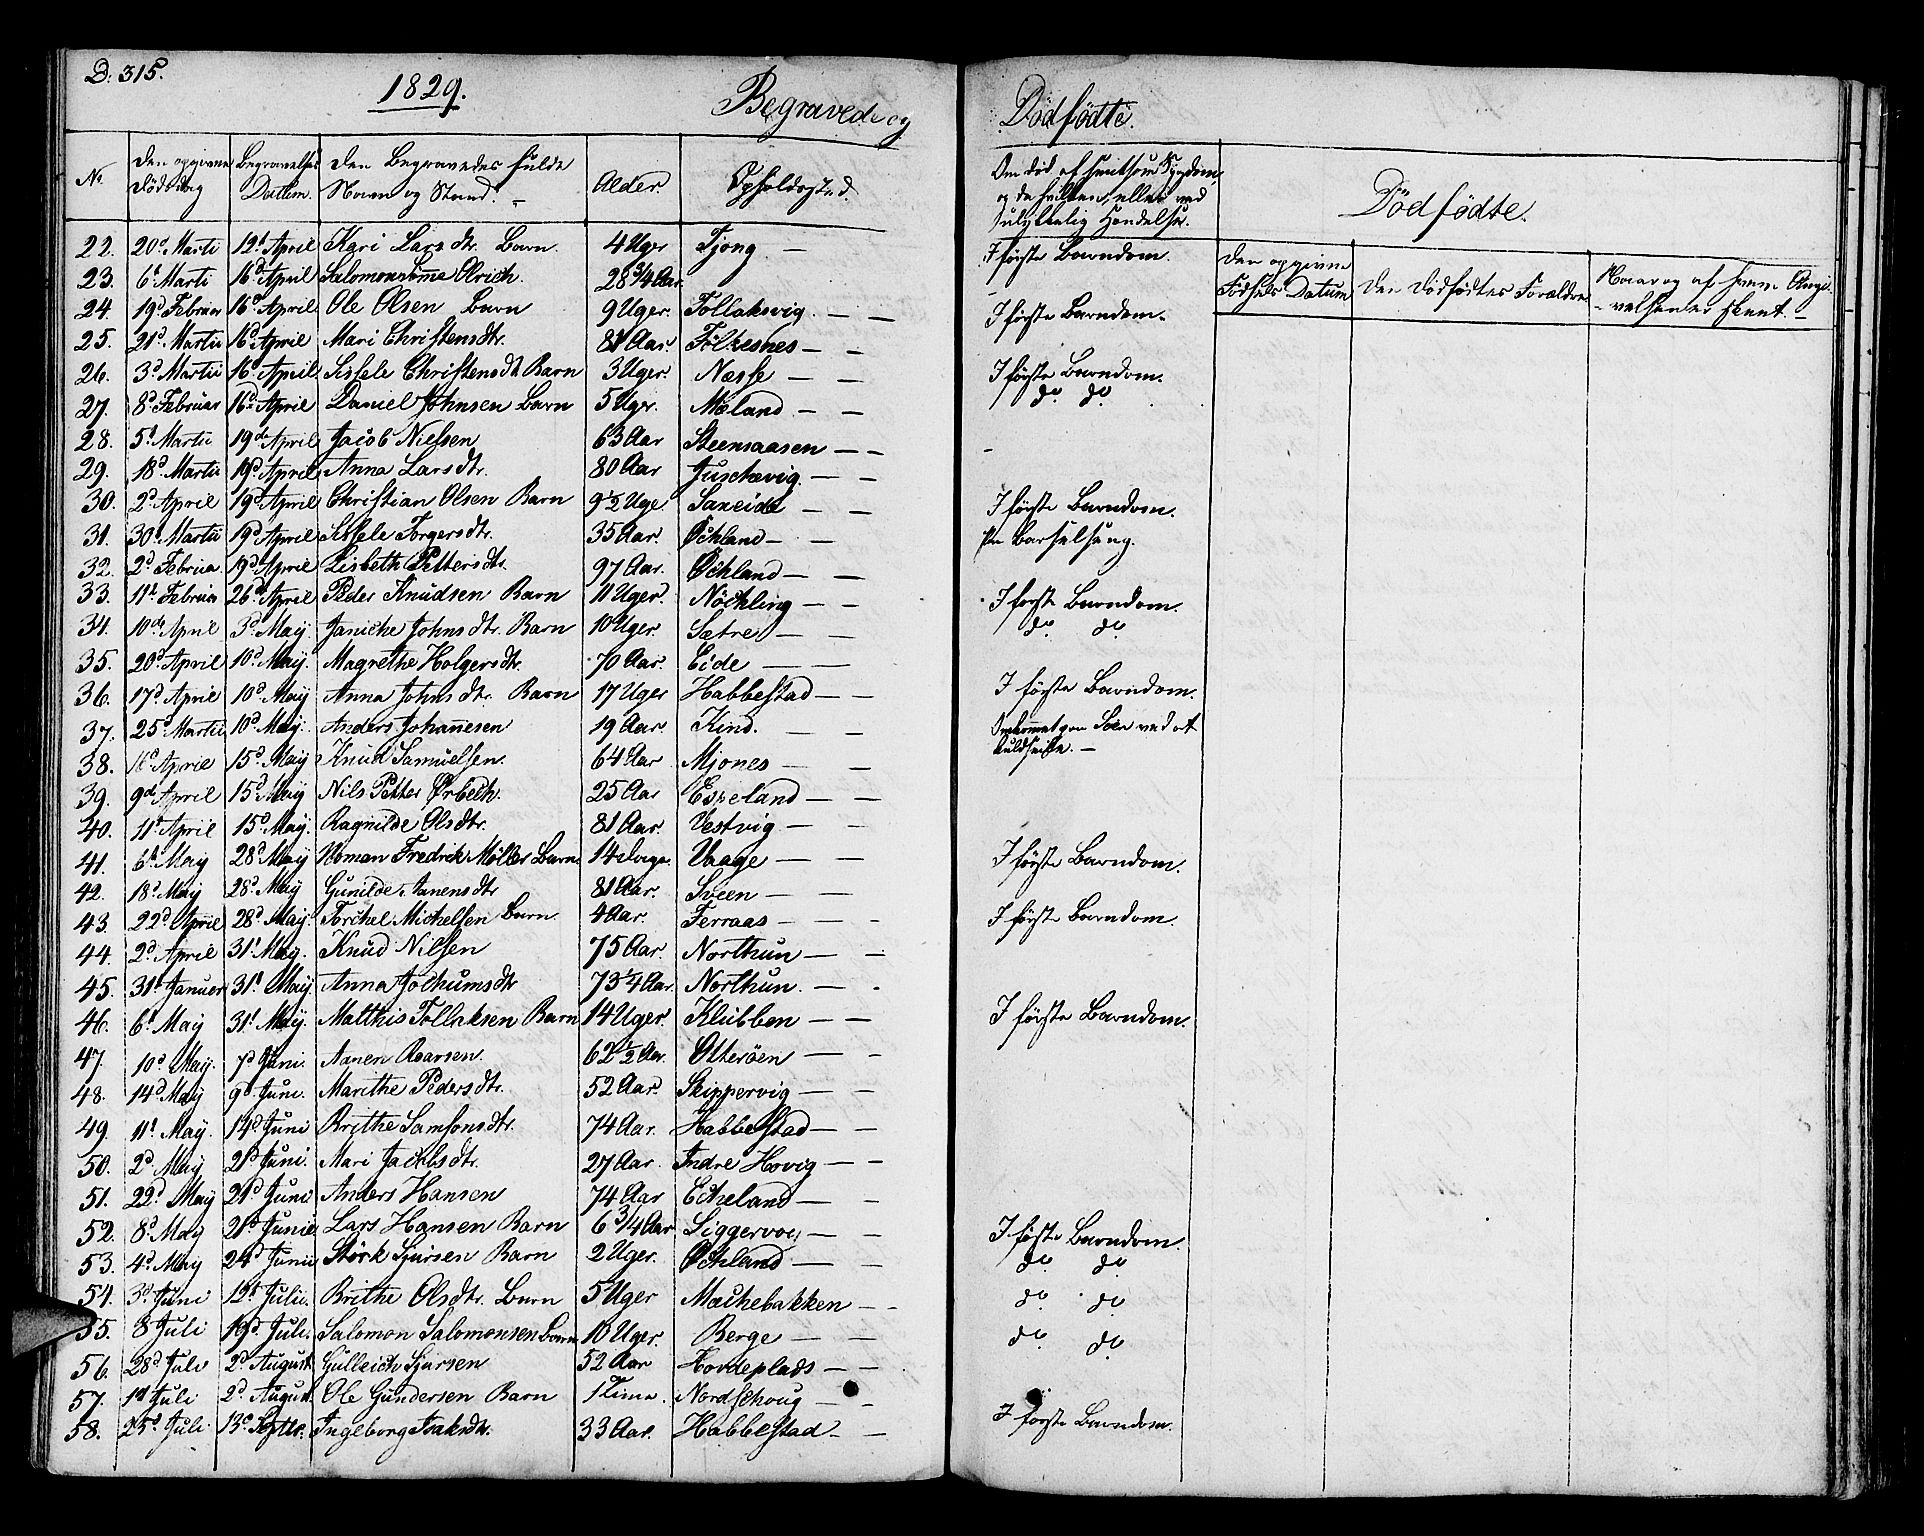 D: 315.
1829.
Begravede og
Dödfödte.
No. Den opgivne Dödsdag Begravelses Datum. Den Begravedes fulde Navn og Stand. Alder Opholdssted. Om död af smitsom Sygdom, og da hvilken, eller ved Ulykkelig Hendelse.
Dödfödte.
Den opgivne Födsels Datum Den Dödfödtes Forældre
22. 20d Marti 12t April Kari Lars dtr. Barn. 4 Uger Tjong — I förste Barndom.
23. 6t Marti 16d April Salomon Olrich. 28 3/4 Aar.
24. 19d Februar 16d April Ole Olsen Barn 9 Uger. Follaksvig. — — I förste Barndom.
25. 21d Martii 16d April Mari Christensdtr. 81 Aar. Fölkesnes — —
26. 3d Martii 16d April Sissele Christensdtr Barn 3 Uger. Næsse — — I förste Barndom.
27. 8d Februar 16d April Daniel Johnsen Barn 5 Uger. Mæland — — do do
28. 5t Martii 19de April Jacob Nielsen 63 Aar Steensaasen — —
29. 18d Martii 19d April Anna Lars dtr. 80 Aar — —
30. 2d April 19d April Christian Olsen Barn 9 1/2 Uge. Saxeide — — I förste Barndom.
31. 30 Martii 19d April Sissele Torgersdtr. 35 Aar. Öchland — — Paa Barselseng.
32. 2d Februa. 19d April Lisbeth Petters dtr. 97 Aar. Öchland — —
33. 11t Februar 26d April Peder Knudsen Barn 11 Uger. Nöchling — — I förste Barndom.
34. 10de April 3d Maij Janiche Johns dtr. Barn 10 Uger. Sætre — — do do
35. 20d April 10d Maij. Magrethe Holgers dtr. 70 Aar. Eide — —
36. 17d April 10d Maij Anna Johns dtr. Barn 17 Uger Habbestad — — I förste Barndom.
37. 25d Martii 10d Maij. Anders Johannesen 19 Aar. Kind. — Omkommet paa Söen ved at kuldseile. —
38. April 15d Maij Knud Samuelsen. 64 Aar Mjones — —
39. 9d April 15d Maij Nils Petter Örbech. 25 Aar Espeland — —
40. 11t April 15d Maij. Ragnilde Olsdtr. 81 Aar. Vestvig — —
41. 6t Maij 28d Maij Noman Fredrik Möller Barn. 14 Vaage — — I förste Barndom.
42. 18d Maij 28d Maij Gunilde Aanensdtr 81 Aar. Sveen — —
43. 22d April 28d Maij. Torchel Michelsen Barn 4 Aar. Ferraas — — I förste Barndom.
44. 2d April 31t Maij. Knud Nilsen 75 Aar. Northun — —
45. 31t Januer 31t Maij. Anna Jochumsdtr 73 1/4 Aar. Northun. —
46. 6t Maij 31t Maij. Matthis Tollaksen Barn 14 Uger. Klubben — — I förste Barndom.
47. 10d Maij. 7d Juni. Aanen Roarsen. 62 1/2 Aar. Otteröen — —
48. 14d Maij 9d Juni. Marithe Peders dtr. 52 Aar. Skippervig — —
49. 11t Maij. 14d Juni Brithe Samsons dtr. 74 Aar. Habbestad — —
50. 2d Maij 21d Juni. Mari Jacobsdtr. 27 Aar. Indre Hovig — —
51. 22d Maij 21d Juni Anders Hansen 74 Aar Echeland — —
52. 8d Maij 21d Junii Lars Hansen Barn 6 3/4 Aar Siggervog — — I förste Barndom.
53. 4d Maij 24d Junii Störk Sjursen Barn 2 Uger. Öchland — — do do
54. 3d Juni 12t Julii. Brithe Olsdtr. Barn 5 Uger Machebakken — — do do
55. 8 Juli 19d Juli. Salomon Salomonsen Barn 10 Uger. Berge — — do do
56. 28d Juli 2d August. Gulleich Sjursen 52 Aar Hovdeplads — —
57. 1t Juli 2d August. Ole Gundersen Barn 1 Time. Nordschoug — —
58. 25d Juli 13d Septbr. Ingeborg Isaksdtr. 33 Aar. Habbestad — — I förste Barndom.